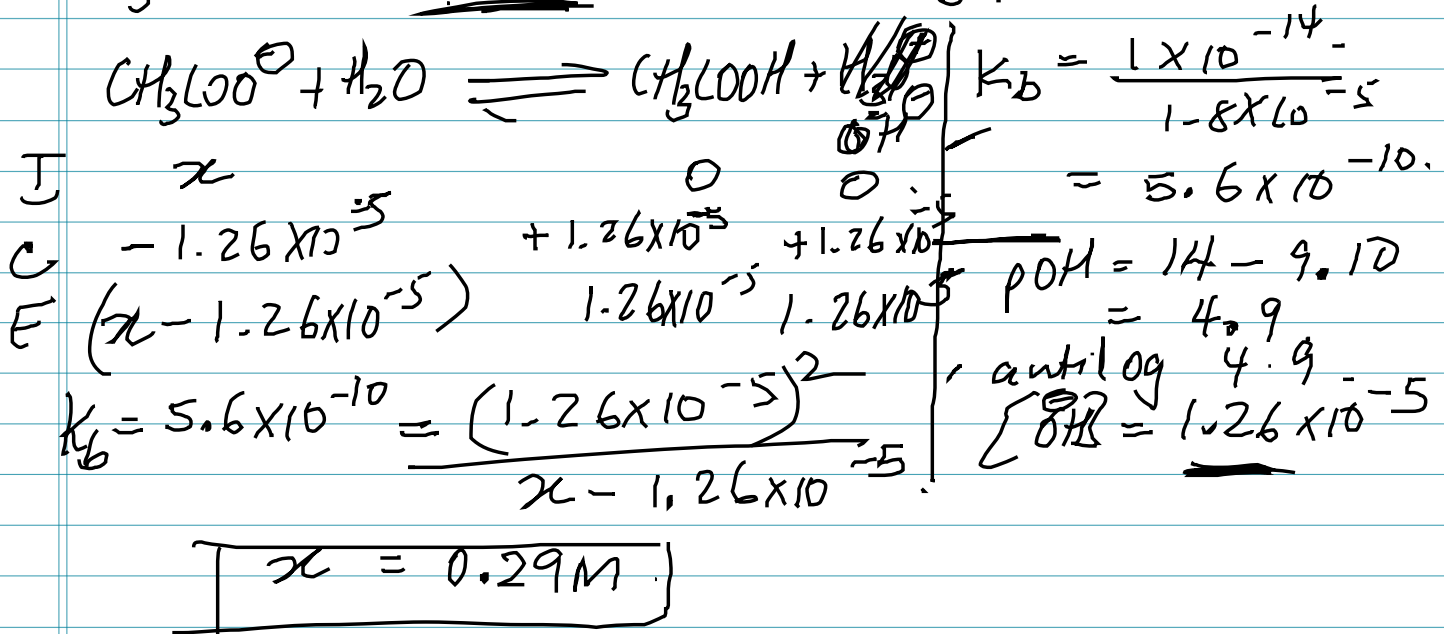 CH₃COO⊖ + H₂O ⇌ CH₃COOH +
OH
I x 0 0
C - 1.26 X10⁻⁵ + 1.26X10⁻⁵ + 1.26 X10⁻⁵
E (x - 1.26X10⁻⁵) 1.26X10⁻⁵ 1.26X10⁻⁵
K_b = 5.6X10⁻¹⁰ = (1.26X10⁻⁵)²
x - 1.26X10⁻⁵
x = 0.29M
K_b = 1 X 10⁻¹⁴
1.8X10⁻⁵
= 5.6 X 10⁻¹⁰.
pOH = 14 - 9.10
= 4.9
antilog 4.9
[OH⊖] = 1.26 X10⁻⁵